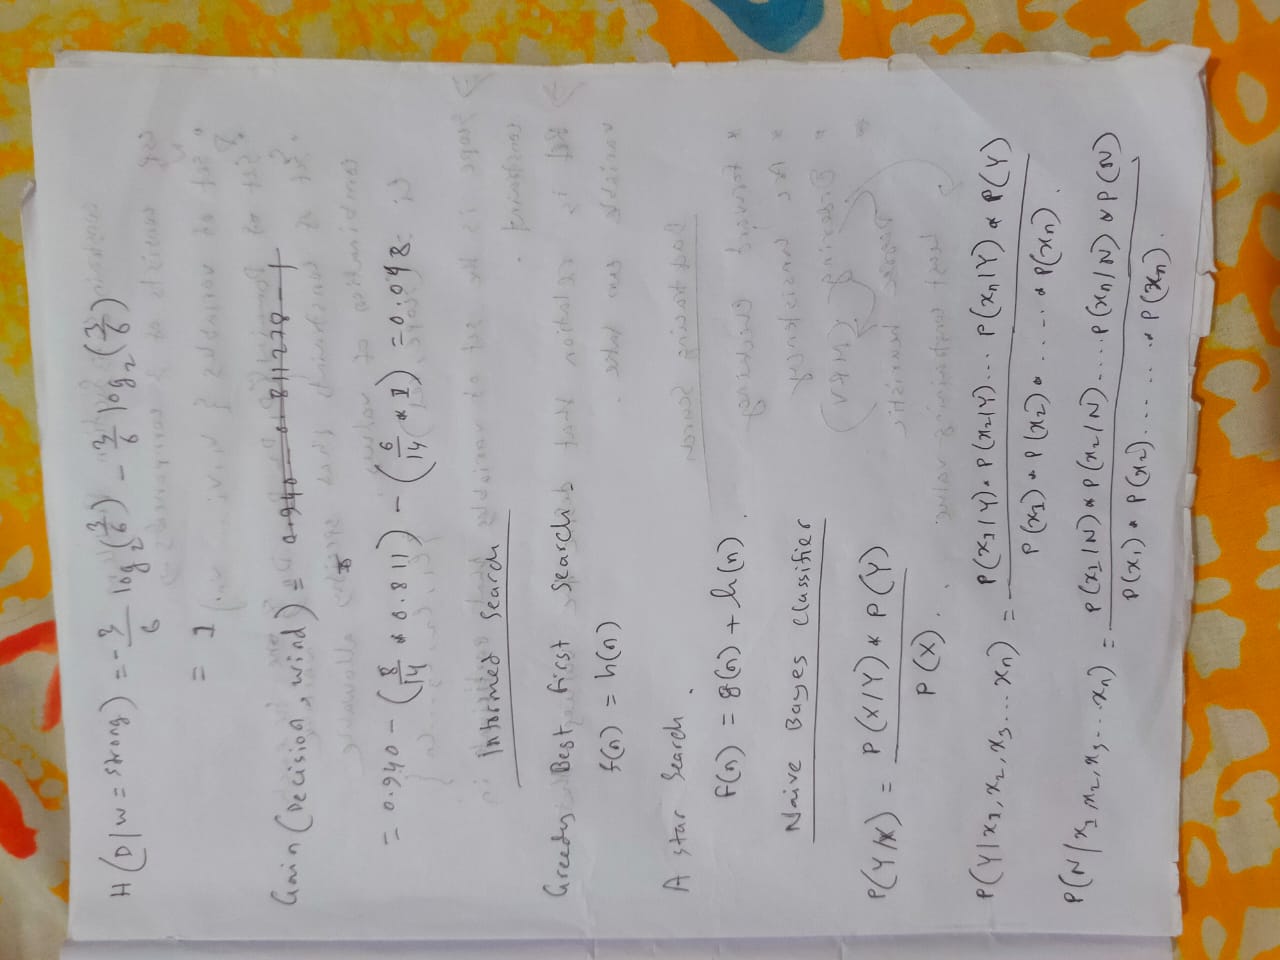 H(D|W=strong) = -3/6 log₂(3/6) - 3/6 log₂(3/6)
= 1
Gain(Decision, wind) = 0.940 - 0.811278 - 1
= 0.940 - (8/14 * 0.811) - (6/14 * 1) = 0.048
Informed Search
Greedy Best first search.
f(n) = h(n)
A star Search.
f(n) = g(n) + h(n).
Naive Bayes Classifier
P(Y/X) = P(X/Y) * P(Y) / P(X).
P(Y|x1, x2, x3 ... xn) = P(x1|Y) * P(x2|Y) ... P(xn|Y) * P(Y) / P(x1) * P(x2) * ..... * P(xn).
P(N/x1 x2, x3 ... xn) = P(x1/N) * P(x2/N) ..... P(xn/N) * P(N) / P(x1) * P(x2) ...... * P(xn).